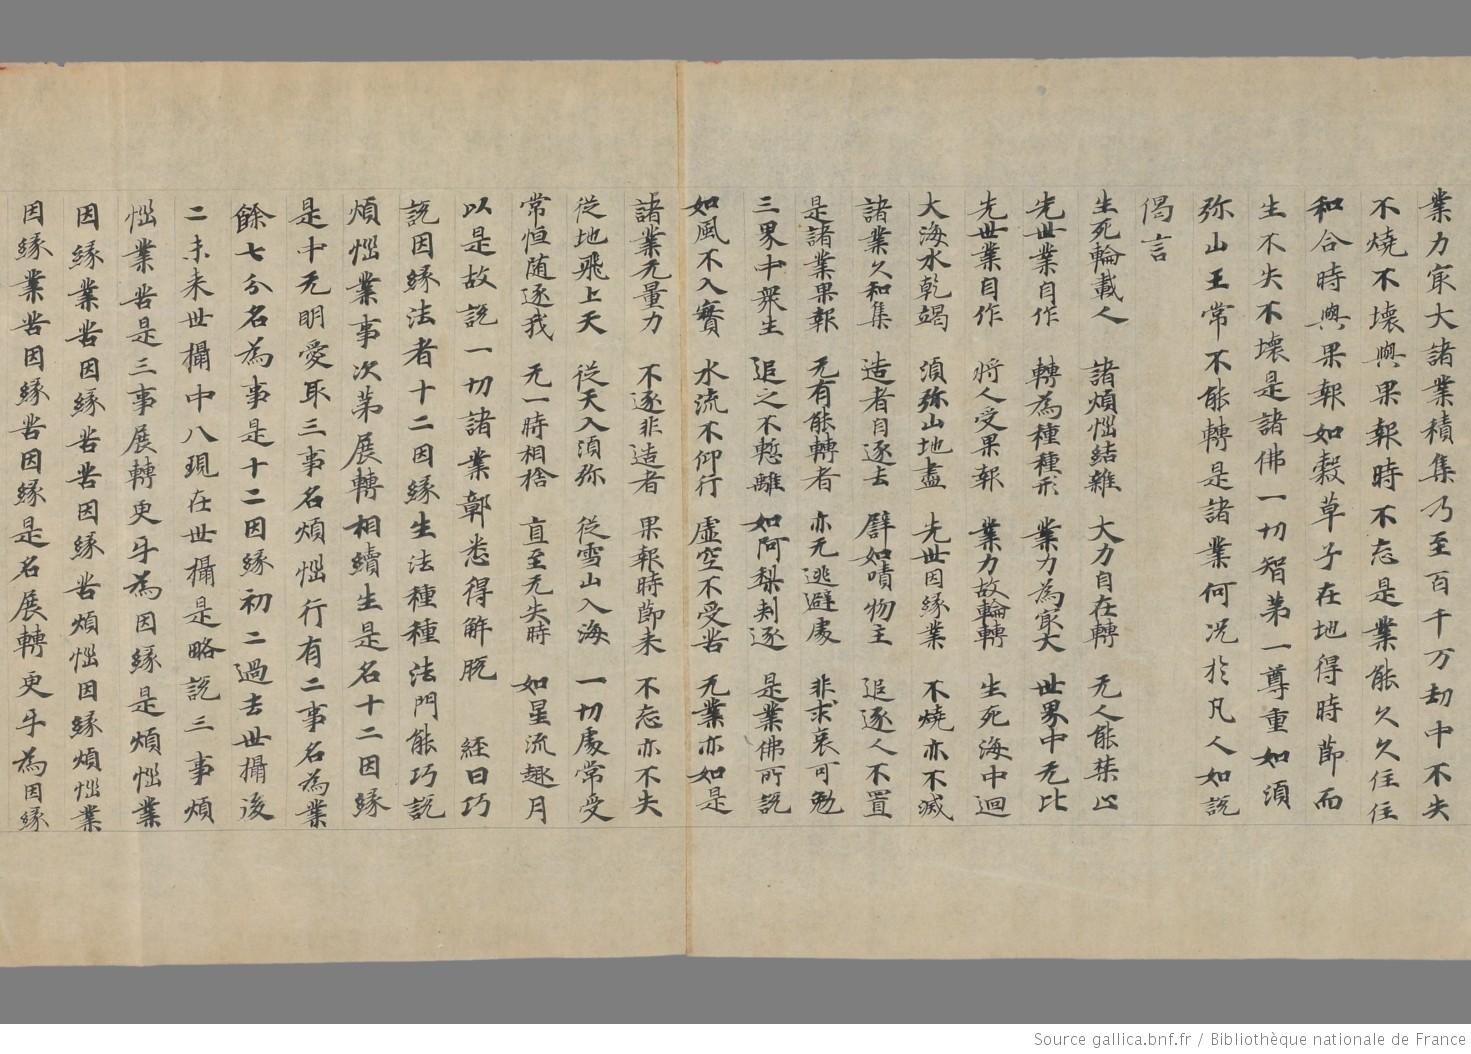 業力㝡大諸業積集乃至百千万劫中不失
不燒不壞與果報時不忘是業能久久住住
和合時與果報如穀草子在地得時節而
生不失不壞是諸佛一切智第一尊重如須
弥山王常不能轉是諸業何况於凡人如說
偈言
生死輪載人 諸煩惱結雜 大力自在轉 无人能禁止
先世業自作 轉為種種形 業力為㝡大 世界中无比
先世業自作 將人受果報 業力故輪轉 生死海中迴
大海水乾竭 須弥山地盡 先世因緣業 不燒亦不滅
諸業久和集 造者自逐去 譬如債物主 追逐人不置
是諸業果報 无有能轉者 亦无逃避處 非求哀可勉
三界中衆生 追之不慙離 如阿梨刾逐 是業佛所說
如風不入實 水流不仰行 虛空不受害 无業亦如是
諸業无量力 不逐非造者 果報時節来 不忘亦不失
從地飛上天 從天入須弥 從雪山入海 一切處常受
常恒随逐我 无一時相捨 直至无失時 如星流趣月
以是故說一切諸業鄣悉得解脫 經曰巧
說因緣法者十二因緣生法種種法門能巧說
煩惱業事次第展轉相續生是名十二因緣
是中无明愛取三事名煩惱行有二事名為業
餘七分名為事是十二因緣初二過去世攝後
二未来世攝中八現在世攝是略說三事煩
惱業苦是三事展轉更㸦為因緣是煩惱業
因緣業苦因緣苦苦因緣苦煩惱因緣煩惱業
因緣業苦因緣苦因緣是名展轉更㸦為因緣
Source gallica.bnf.fr / Bibliothèque nationale de France